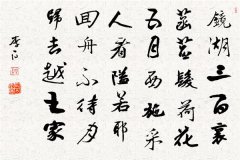 鏡湖三百裏
菡萏髮荷花
五月西施采
人看隘若耶
回舟不待月
歸去越王家